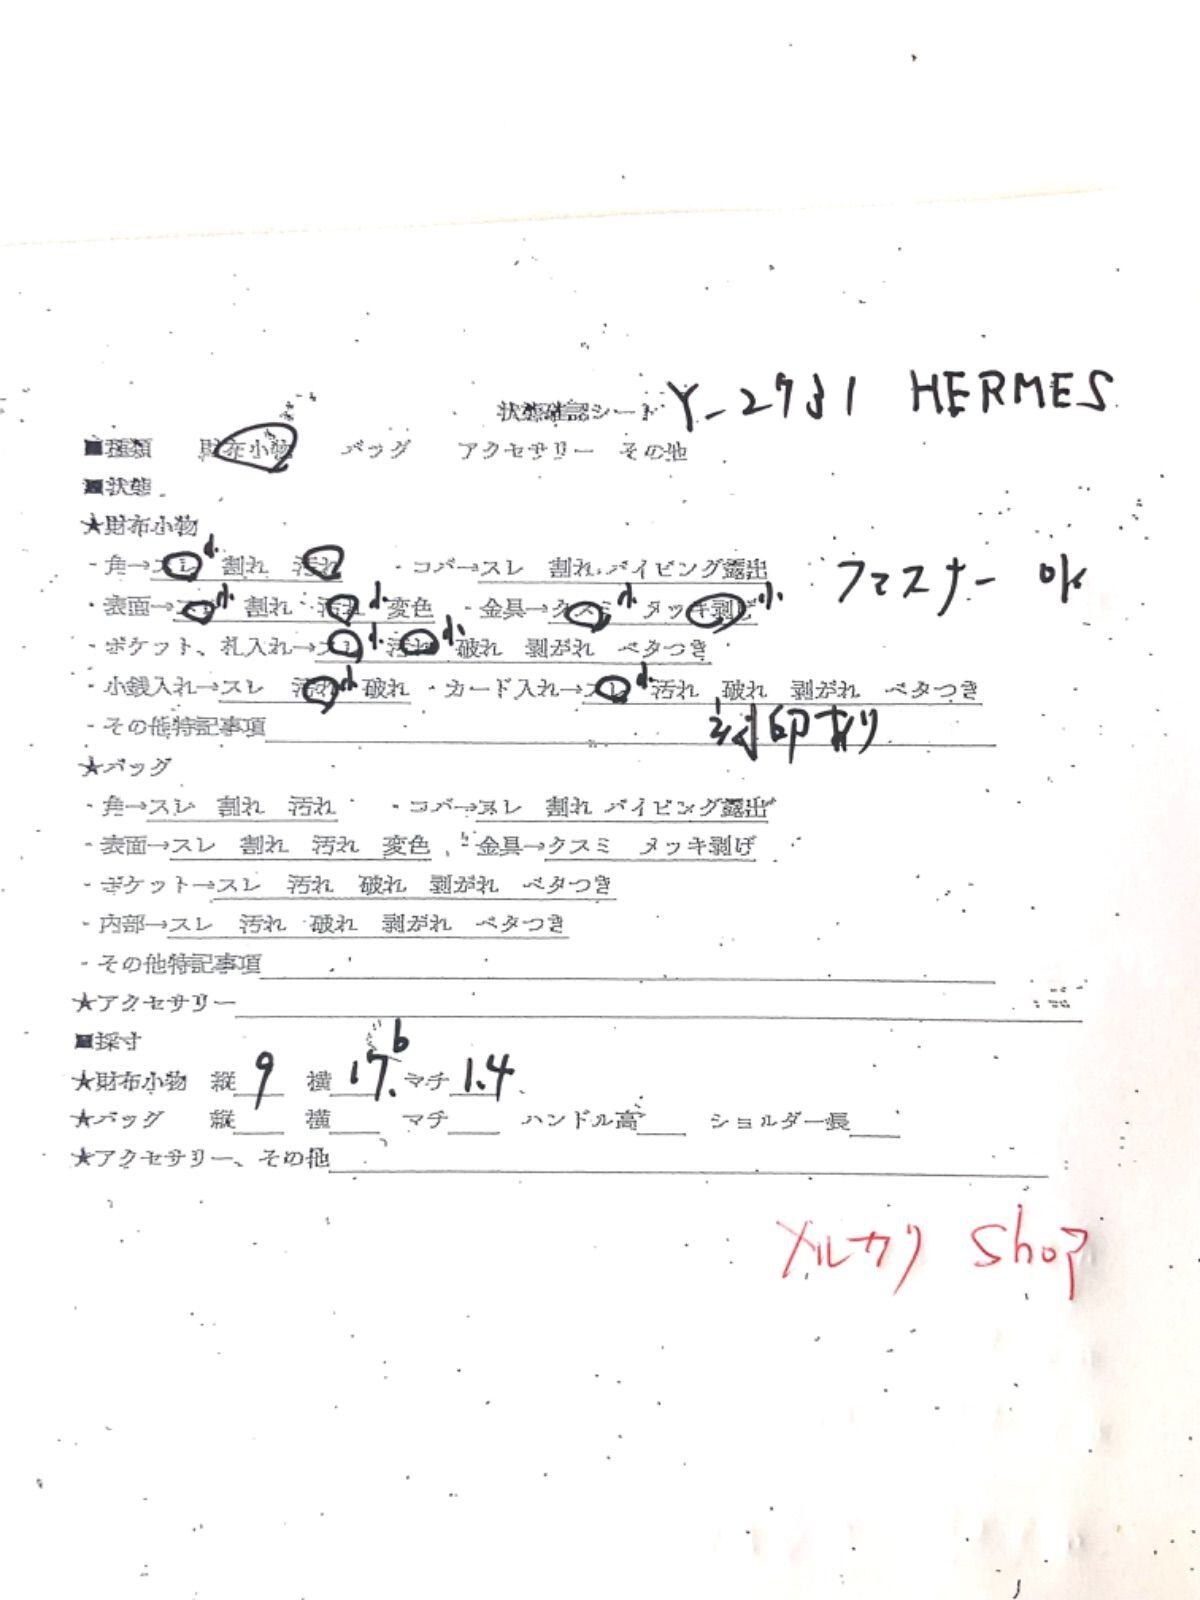 状態確認シート Y-2731 HERMES
■種類 財布小物 バッグ アクセサリー その他
■状態
★財布小物
・角→スレ小 割れ 汚れ ・コバ→スレ 割れ パイピング露出 ファスナー OK
・表面→スレ小 割れ 汚れ小 変色 ・金具→クスミ小 メッキ剥げ小
・ポケット、札入れ→スレ小 汚れ小 破れ 剥がれ ベタつき
・小銭入れ→スレ 汚れ小 破れ ・カード入れ→スレ小 汚れ 破れ 剥がれ ベタつき
・その他特記事項 刻印あり
★バッグ
・角→スレ 割れ 汚れ ・コバ→スレ 割れ パイピング露出
・表面→スレ 割れ 汚れ 変色 ・金具→クスミ メッキ剥げ
・ポケット→スレ 汚れ 破れ 剥がれ ベタつき
・内部→スレ 汚れ 破れ 剥がれ ベタつき
・その他特記事項
★アクセサリー
■採寸
★財布小物 縦 9 横 17.6 マチ 1.4
★バッグ 縦 横 マチ ハンドル高 ショルダー長
★アクセサリー、その他
メルカリ Shop